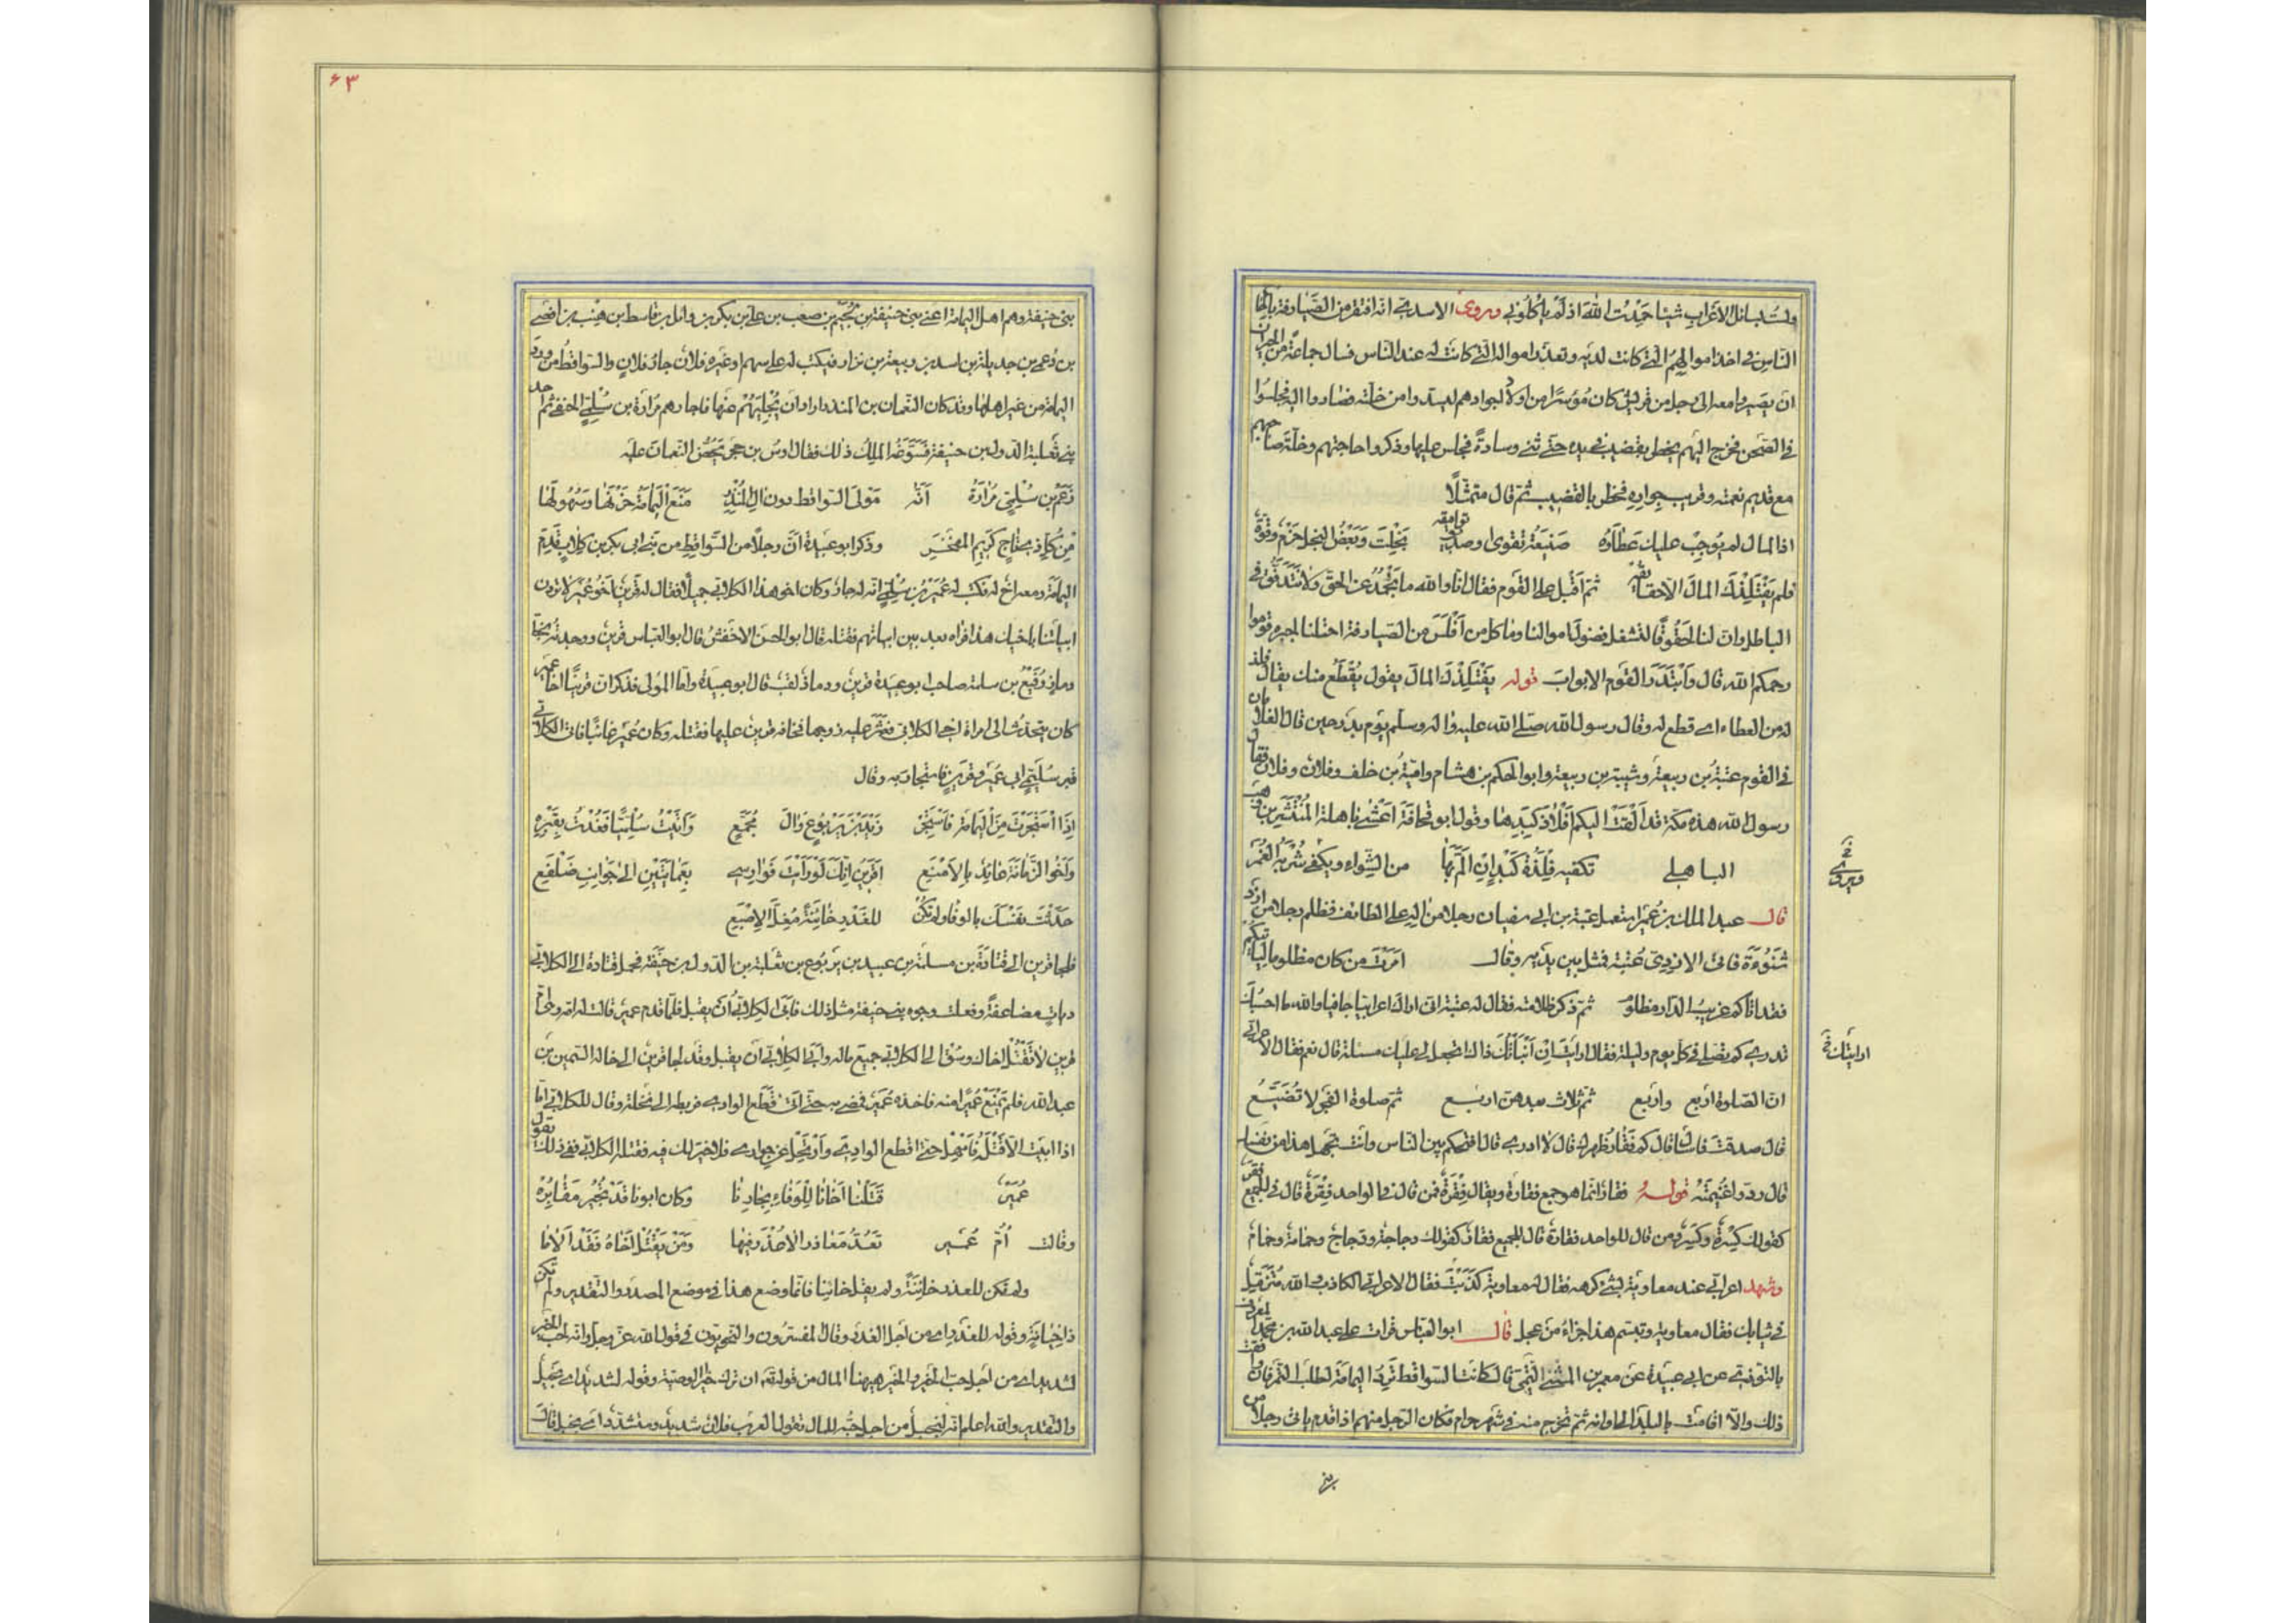 ولست بسائل الاعراب شيئا حمدت الله اذ لم ياكلوني وروى الاسدى انه افتقر من الصيارفة بالحاح
الناس فى اخذ اموالهم التى كانت لديه وتعذر امواله التى كانت له عند الناس فسال جماعة من الجيران
ان يصيروا معه الى رجل من قريش كان موسرا من اولاد اجوادهم ليسد وا من خلته فصاروا اليه فجلسوا
فى الصحن فخرج اليهم يخطر بقضيب فى يده حتى ثنى وسادة فجلس عليها وذكروا حاجتهم وخلة صاحبهم
مع قديم نعمته وقريب جواره فخطر بالقضيب ثم قال متمثلا
اذا المال لم يوجب عليك عطاؤه صنيعة تقوى او صديق توامقه بخلت وبعض البخل حزم وقوة
فلم يفتلذك المال الا حقائقه ثم اقبل على القوم فقال انا والله ما نجمد عن الحق ولا نتدفق فى
الباطل وان لنا لحقوقا لتشغل فضول اموالنا وما كل من افلس من الصيارفة احتلنا لجبره قوموا
رحمكم الله قال وابتدر القوم الابواب قوله يفتلذك المال يقول يقطع منك يقال فلذ
له من العطاء اى قطع له وقال رسول الله صلى الله عليه واله وسلم يوم بدر حين قال الغلامان
فى القوم عتبة بن ربيعة وشيبة بن ربيعة وابو الحكم بن هشام وامية بن خلف وفلان وفلان فقال
رسول الله هذه مكة قد القت اليكم افلاذ كبدها وقول ابو قحافة اعشى باهلة المنتشر بن وهب
الباهلى تكفيه فلذة كبد ان الم بها من الشواء ويكفى شربه الغمر
ويروى
قال عبد الملك بن عمير استعمل عتبة بن ابى سفيان رجلا من اله على الطائف فظلم رجلا من ازد
شنوءة فاتى الازدى عتبة فمثل بين يديه وقال امرت من كان مظلوما لياتيكم
فقد اتاكم غريب الدار مظلوم ثم ذكر ظلامته فقال له عتبة انى اراك اعرابيا جافيا والله ما احسبك
تدرى كم تصلى فى كل يوم وليلة فقال ارايت ان انباتك ذاك اتجعل لى عليك مسئلة قال نعم فقال الاعرابى
ارايتك
ان الصلوة اربع واربع ثم ثلاث بعدهن اربع ثم صلوة الفجر لا تضيع
قال صدقت فاسئل قال كم فقار ظهرك قال لا ادرى قال افتحكم بين الناس وانت تجهل هذا من نفسك
قال ردوا غنيمته قوله فقار انما هو جمع فقارة ويقال فقرة فمن قال فى الواحد فقرة قال فى الجميع فقر
كقولك كسرة وكسر ومن قال للواحد فقارة قال للجميع فقار كقولك دجاجة ودجاج وحمامة وحمام
وشهد اعرابى عند معاوية بشئ كرهه فقال له معاوية كذبت فقال الاعرابى الكاذب والله متزمل
فى ثيابك فقال معاوية وتبسم هذا جزاء من عجل قال ابو العباس قرات على عبد الله بن محمد المعروف
بالتوزى عن ابى عبيدة عن معمر بن المثنى التيمى قال كانت السواقط ترد اليمامة لطلب التمر فان وافقت
ذلك والا اقامت بالبلد الى اوانه ثم تخرج منه فى شهر حرام فكان الرجل منهم اذا قدم ياتى رجلا من
بنى
۶۳
بنى حنيفة وهم اهل اليمامة اعنى بنى حنيفة بن لجيم بن صعب بن على بن بكر بن وائل بن قاسط بن هنب بن افصى
بن دعمى بن جديلة بن اسد بن ربيعة بن نزار فيكتب له على سهم او غيره فلان جار فلان والسواقط من ورد
اليمامة من غير اهلها وقد كان النعمان بن المنذر اراد ان يجليهم عنها فاجارهم مرارة بن سلمى الحنفى ثم احد
بنى ثعلبة الدول بن حنيفة فسوغه الملك ذلك فقال اوس بن حجر يحض النعمان عليه
زعم بن سلمى مرارة انه مولى السواقط دون ال المنذر منع اليمامة حزنها وسهولها
من كل ذى تاج كريم المفخر وذكر ابو عبيدة ان رجلا من السواقط من بنى ابى بكر بن كلاب قدم
اليمامة ومعه اخ له فكتب له عمير بن سلمى انه له جار وكان اخو هذا الكلابى جميلا فقال له قرين اخو عمير لا تردن
ابياتنا باخيك هذا فراه بعد بين ابياتهم فقتله قال ابو الحسن الاخفش قال ابو العباس قرين ووجدته بخط
دماذ رفيع بن سلمة صاحب ابو عبيدة قرين ودماذ لقب قال ابو عبيدة واما المولى فذكر ان قرينا اخا عمير
كان يتحدث الى امراة اخى الكلابى فعثر عليه زوجها فخافه قرين عليها فقتله وكان عمير غائبا فاتى الكلابى
قبر سلمى ابى عمير وقرين فاستجار به وقال
اذا استجرت من اليمامة فاستجر زيد بن يربوع وال مجمع واتيت سلميا فعذت بقبره
واخو الزمانة عائذ بالامنع اقرين انك لو رايت فوارسى بعمايتين الى جوانب ضلفع
حدثت نفسك بالوفاء ولم تكن للغدر خائنة مغل الاصبع
فلجا قرين الى قتادة بن مسلمة بن عبيد بن يربوع بن ثعلبة بن الدول بن حنيفة فحمل قتادة الى الكلابى
ديات مضاعفة وفعلت وجوه بنى حنيفة مثل ذلك فابى الكلابى ان يقبل فلما قدم عمير قالت له امه وهى ام
قرين لا تقتل اخاك وسق الى الكلابى جميع ماله وابى الكلابى ان يقبل وقد لجا قرين الى خاله السمين بن
عبد الله فلم يمنع عميرا منه فاخذه عمير فمضى به حتى قطع الوادى فربطه الى نخلة وقال للكلابى اما
اذا ابيت الا قتله فامهل حتى اقطع الوادى وارتحل عن جوارى فلا خير لك فيه فقتله الكلابى ففى ذلك يقول
عمير قتلنا اخانا للوفاء بجارنا وكان ابونا قد تجير مقابره
وقالت ام عمير تعد معاذرا لا عذر فيها ومن يقتل اخاه فقد الاما
ولم تكن للغدر خائنة ولم يقل خائنا فانما وضع هذا فى موضع المصدر والتقدير ولم تكن
ذا خيانة وقوله للغدر اى من اجل الغدر وقال المفسرون والنحويون فى قول الله عز وجل وانه لحب الخير
لشديد اى من اجل حب الخير والخير ههنا المال من قوله تع ان ترك خيرا الوصية وقوله لشديد اى لبخيل
والتقدير والله اعلم انه لبخيل من اجل حبه للمال تقول العرب فلان شديد ومتشدد اى بخيل قال